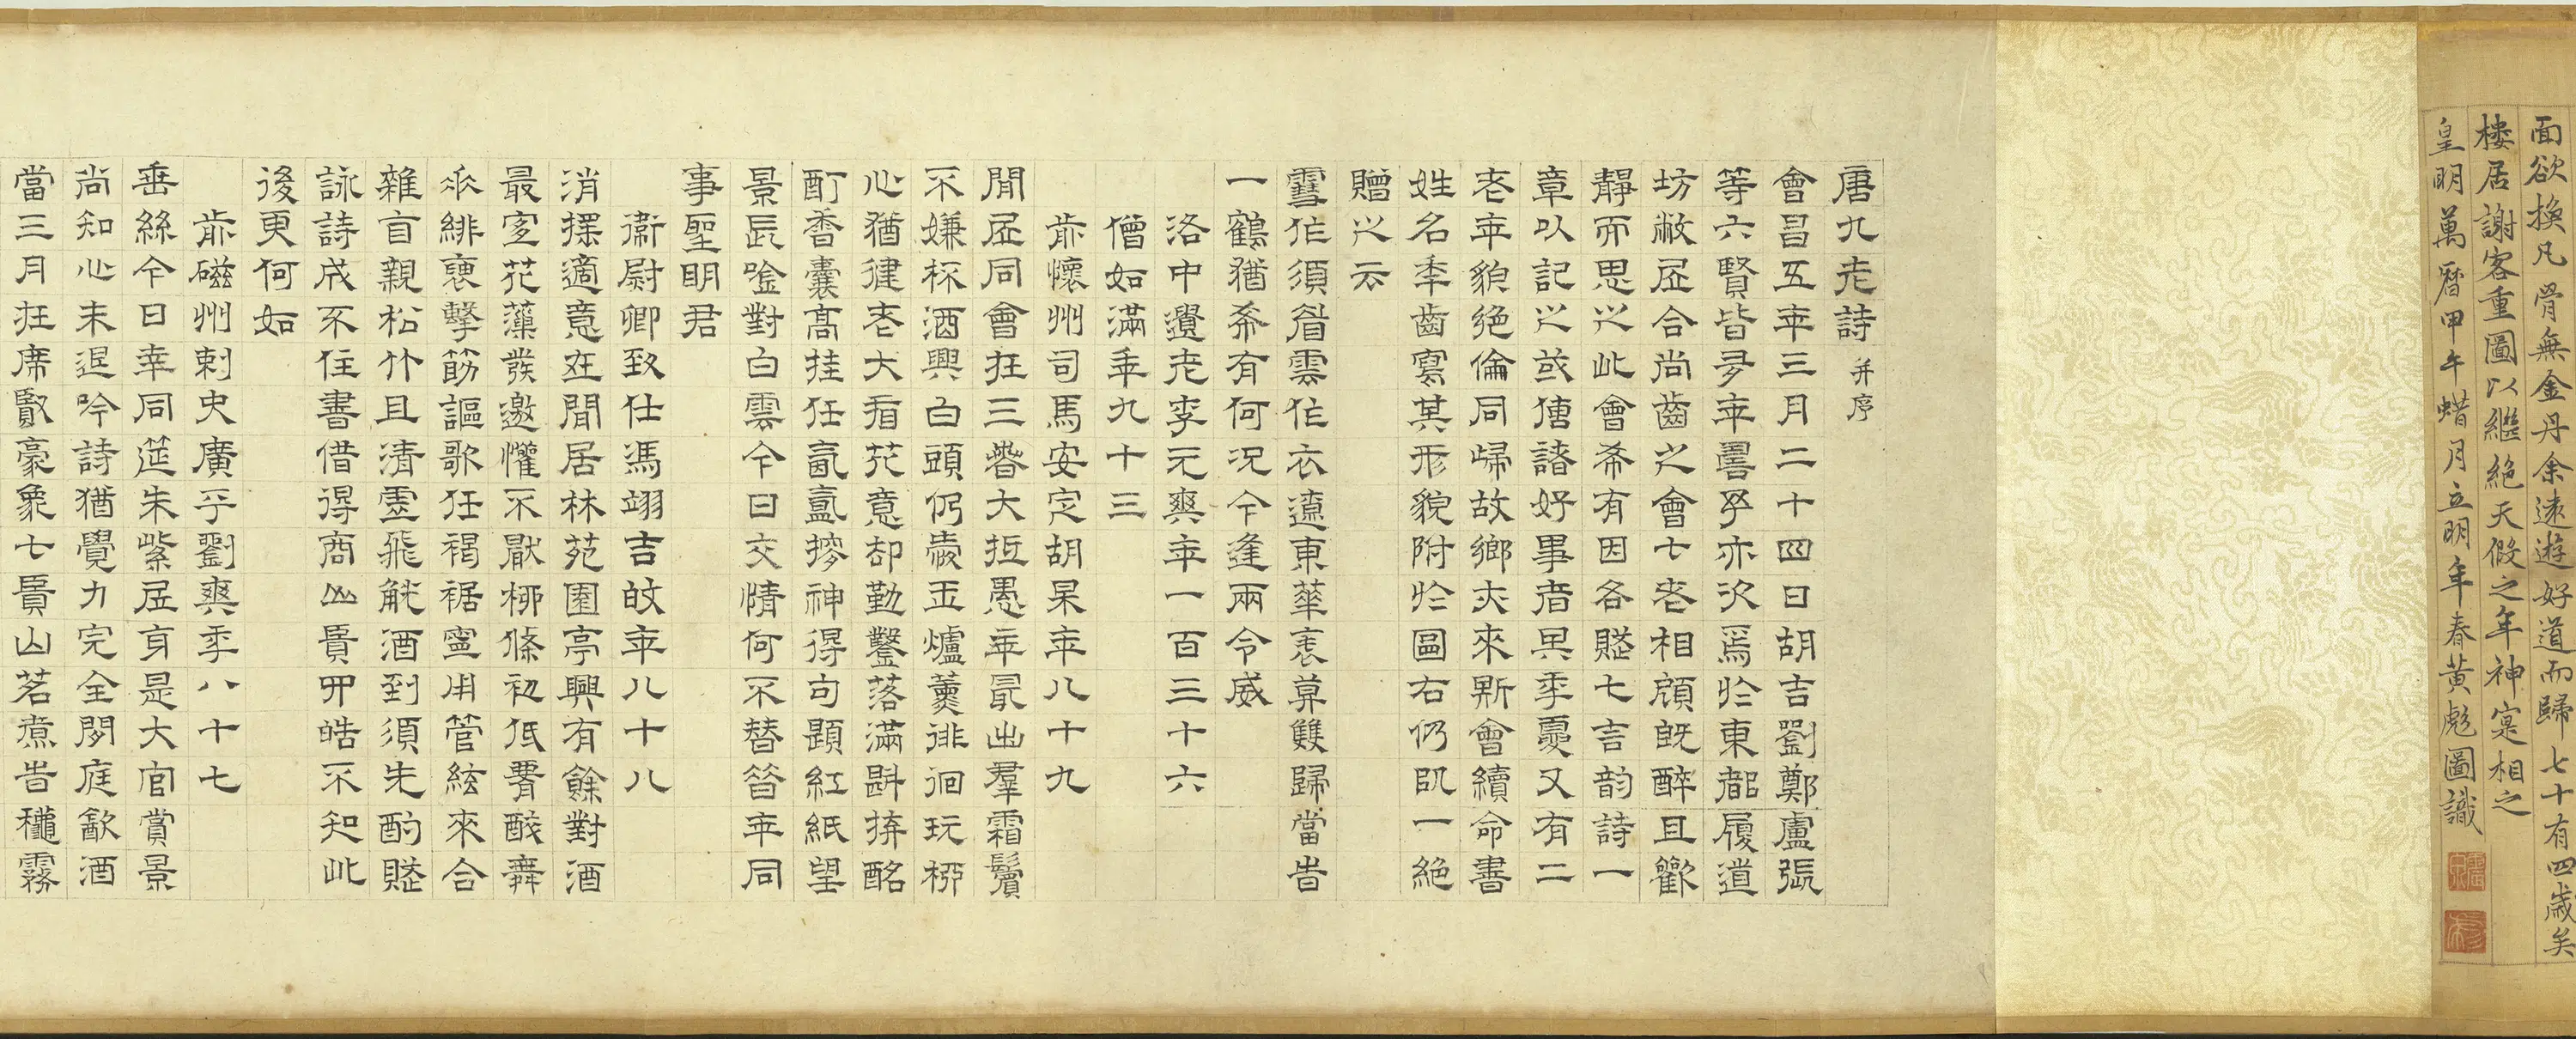 面欲換凡骨無金丹余遠遊好道而歸七十有四歲矣
樓居謝客重圖以繼絕天假之年神寔相之
皇明萬曆甲午蜡月立明年春黃彪圖識
唐九老詩并序
會昌五年三月二十四日胡吉劉鄭盧張
等六賢皆多年壽予亦次焉於東都履道
坊敝居合尚齒之會七老相顧既醉且歡
靜而思之此會希有因各賦七言韵詩一
章以記之或傳諸好事者其年夏又有二
老年貌絕倫同歸故鄉亦來斯會續命書
姓名年齒寫其形貌附於圖右仍以一絕
贈之云
雪作須眉雲作衣遼東華表暮雙歸當時
一鶴猶希有何況今逢兩令威
洛中遺老李元爽年一百三十六
僧如滿年九十三
前懷州司馬安定胡杲年八十九
閒居同會在三春大抵愚年最出羣霜鬢
不嫌杯酒興白頭仍愛玉爐薰徘徊玩柳
心猶健老大看花意却勤鑿落滿斟拚酩
酊香囊高挂任氤氳搜神得句題紅紙望
景長吟對白雲今日交情何不替昔年同
事聖明君
衛尉卿致仕馮翊吉旼年八十八
消搖適意在閒居林苑園亭興有餘對酒
最宜花藻發邀懽不厭柳條初低腰酘舞
來緋裦擊筯謳歌任褐裾寧用管絃來合
雜自親松竹且清虛飛觥酒到須先酌賦
詠詩成不住書借得商山貴四皓不知此
後更何如
前磁州刺史廣平劉爽年八十七
垂絲今日幸同筵朱紫居身是大官賞景
尚知心未退吟詩猶覺力完全閒庭歙酒
當三月在席歐豪象七賢山茗煮時穠霧